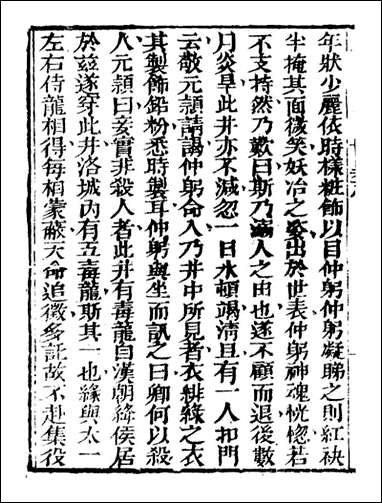 年狀少麗依時樣粧飾以目仲躬仲躬凝睇之則紅袂
半掩其面微笑妖冶之姿出於世表仲躬神魂恍惚若
不支持然乃歎曰斯乃溺人之由也遂不顧而退後數
月炎旱此井亦不減忽一日水頓竭清旦有一人扣門
云敬元潁請謁仲躬命入乃井中所見者衣緋綠之衣
其製飾鉛粉悉時製耳仲躬與坐而訊之曰卿何以殺
人元潁曰妾實非殺人者此井有毒龍自漢朝絳侯居
於茲遂穿此井洛城內有五毒龍斯其一也緣與太一
左右侍龍相得每相蒙蔽天命追徵多託故不赴集役